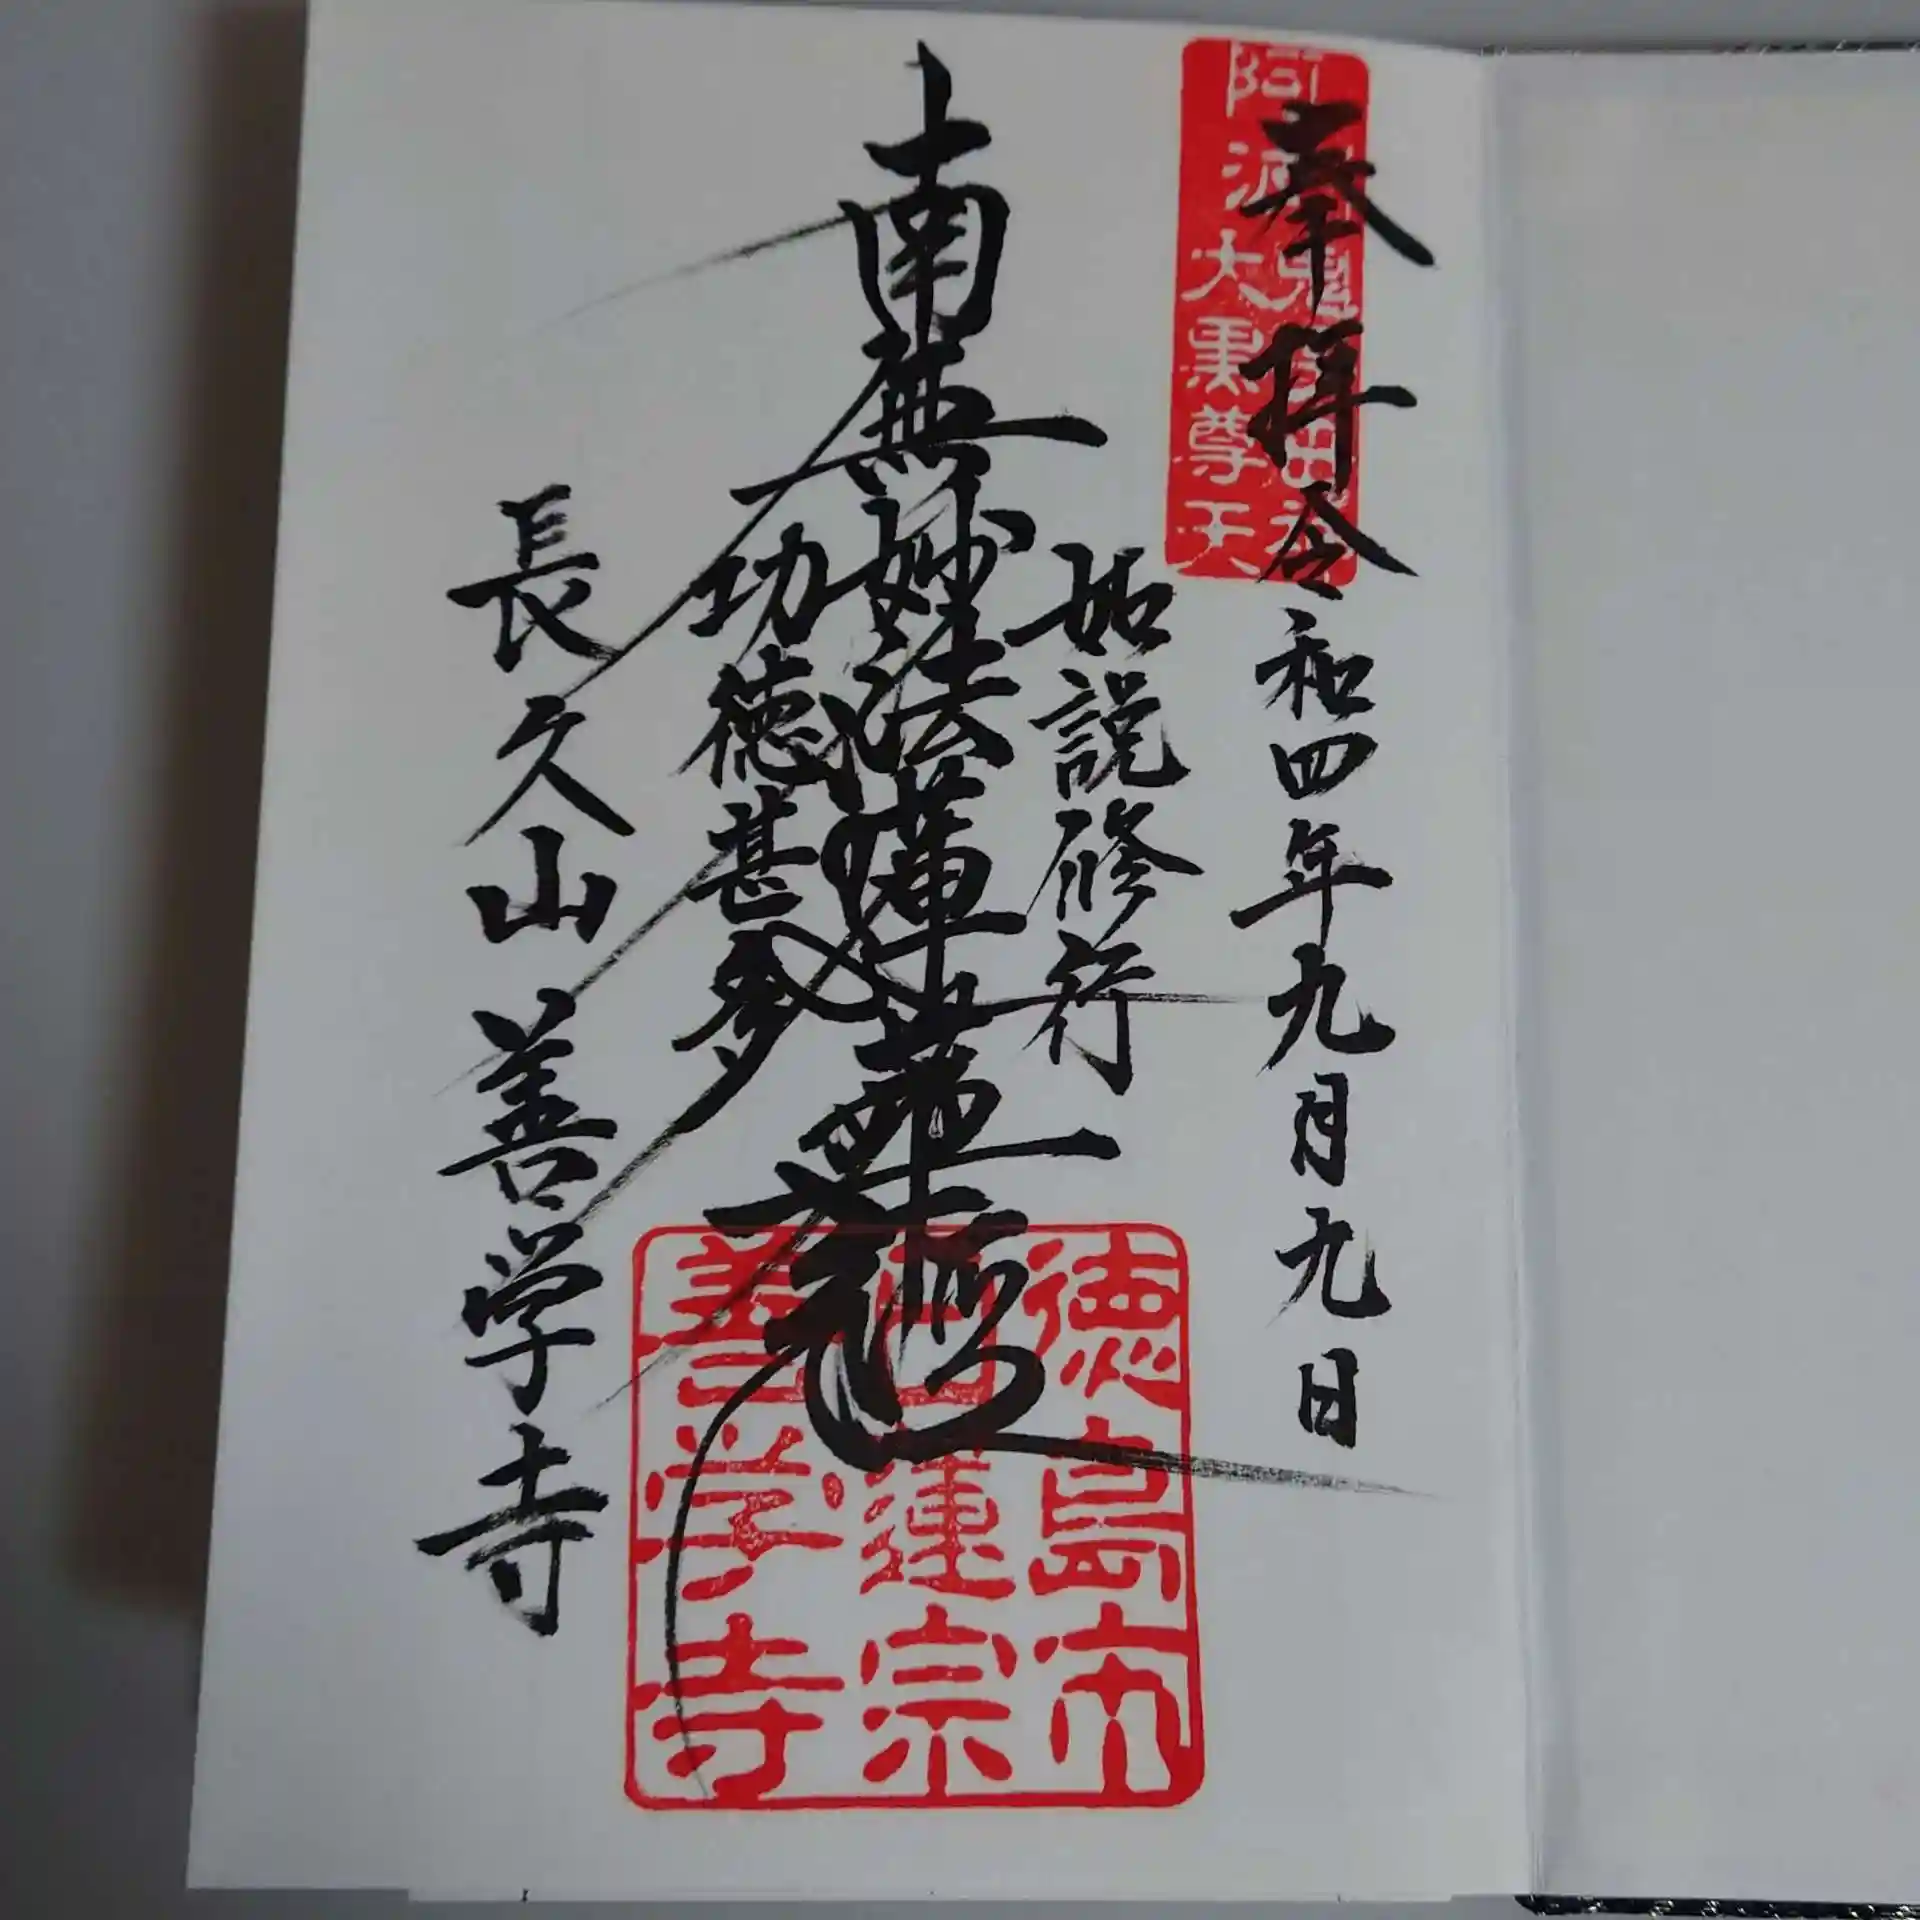 奉拝 令和四年九月九日
如説修行
南無妙法蓮華経
功徳甚多
長久山 善学寺
大黒尊天
徳島市
日蓮宗
善学寺